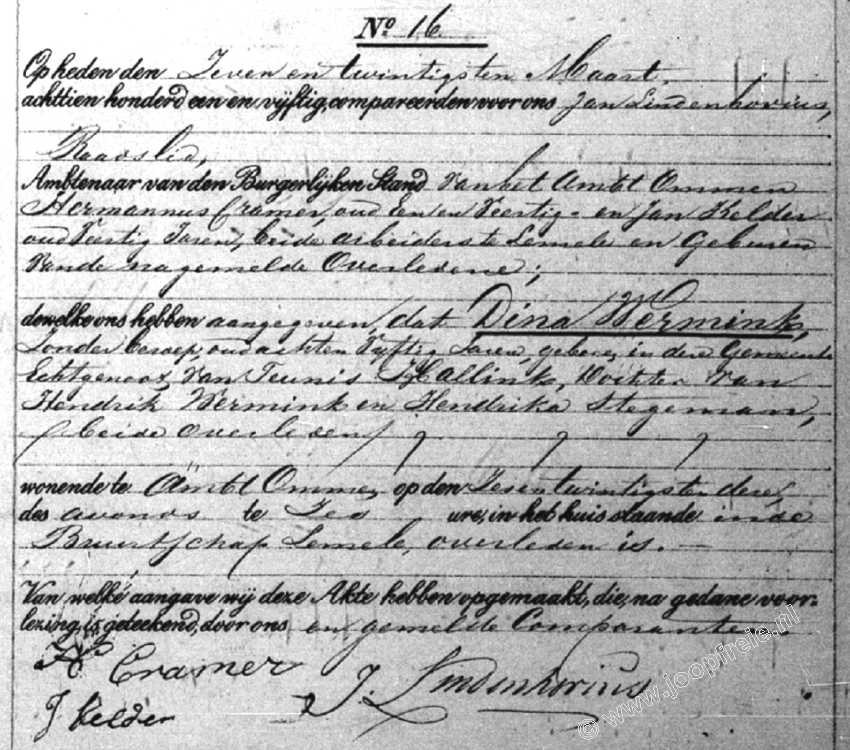 No. 16
Op heden den Zeven en twintigsten Maart,
achttien honderd een en vijftig, compareerden voor ons Jan Lindenhovius,
Raadslid,
Ambtenaar van den Burgerlijken Stand van het Ambt Ommen
Hermannus Cramer, oud Een en Veertig en Jan Kelder
oud Veertig Jaren, beide arbeiders te Lemele en Geburen
van de nagemelde Overledene;
dewelke ons hebben aangegeven, dat Dina Wermink,
zonder beroep, oud acht en Vijftig Jaren, geboren in deze Gemeente
Echtgenoot van Teunis Hallink, Dochter van
Hendrik Wermink en Hendrika Stegeman,
(beide overleden)
wonende te Ambt Ommen, op den Zes en twintigsten dezer
des avonds te Zes ure, in het huis staande in de
Buurtschap Lemele, overleden is. —
Van welke aangave wij deze Akte hebben opgemaakt, die, na gedane voor-
lezing, is geteekend, door ons en gemelde Comparanten.
H Cramer
J. Lindenhovius
J kelder
© www.joopfreie.nl